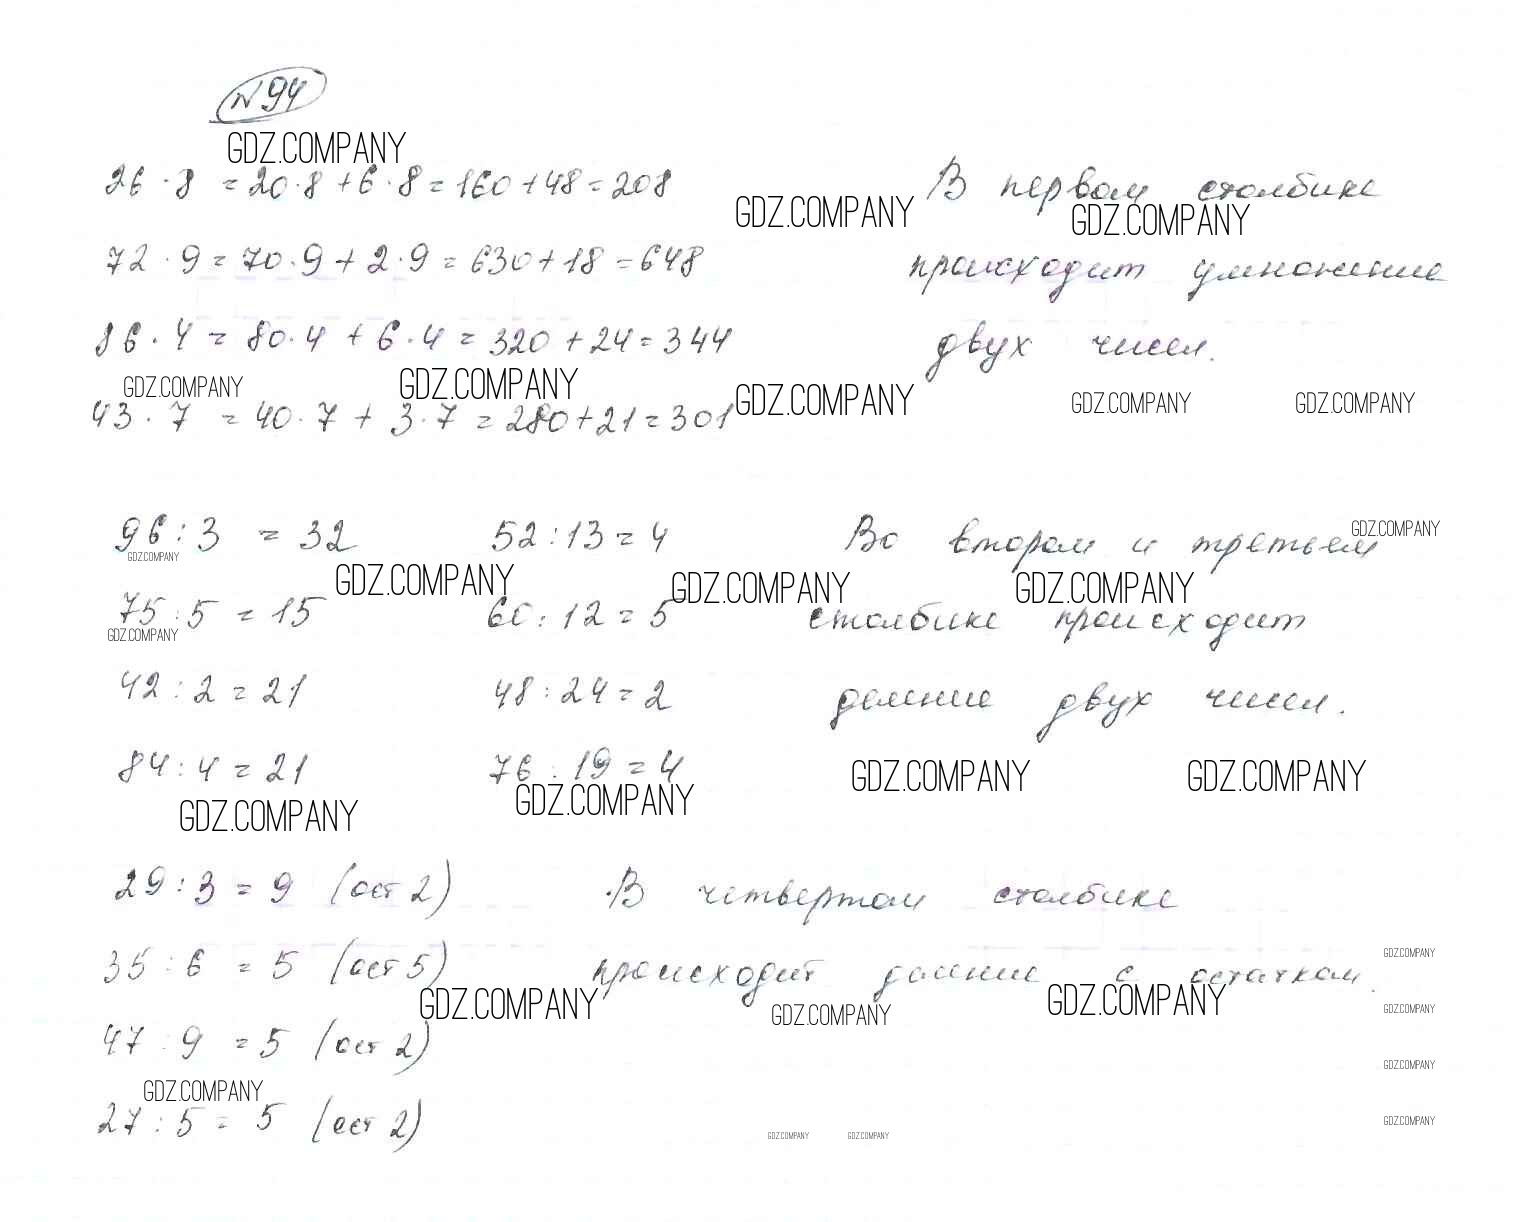 N 94
GDZ.COMPANY
26 · 8 = 20·8 + 6·8 = 160 + 48 = 208
В первом столбике
GDZ.COMPANY GDZ.COMPANY
72 · 9 = 70·9 + 2·9 = 630 + 18 = 648
происходит умножение
86 · 4 = 80·4 + 6·4 = 320 + 24 = 344
двух чисел.
GDZ.COMPANY GDZ.COMPANY GDZ.COMPANY GDZ.COMPANY GDZ.COMPANY
43 · 7 = 40·7 + 3·7 = 280 + 21 = 301
96 : 3 = 32 52 : 13 = 4 Во втором и третьем
GDZ.COMPANY
GDZ.COMPANY GDZ.COMPANY GDZ.COMPANY GDZ.COMPANY
75 : 5 = 15 60 : 12 = 5 столбике происходит
GDZ.COMPANY
42 : 2 = 21 48 : 24 = 2 деление двух чисел.
84 : 4 = 21 76 : 19 = 4
GDZ.COMPANY GDZ.COMPANY GDZ.COMPANY GDZ.COMPANY
29 : 3 = 9 (ост 2) В четвертом столбике
35 : 6 = 5 (ост 5) происходит деление с остатком.
GDZ.COMPANY
GDZ.COMPANY GDZ.COMPANY GDZ.COMPANY GDZ.COMPANY
47 : 9 = 5 (ост 2)
GDZ.COMPANY
GDZ.COMPANY
27 : 5 = 5 (ост 2)
GDZ.COMPANY
GDZ.COMPANY GDZ.COMPANY